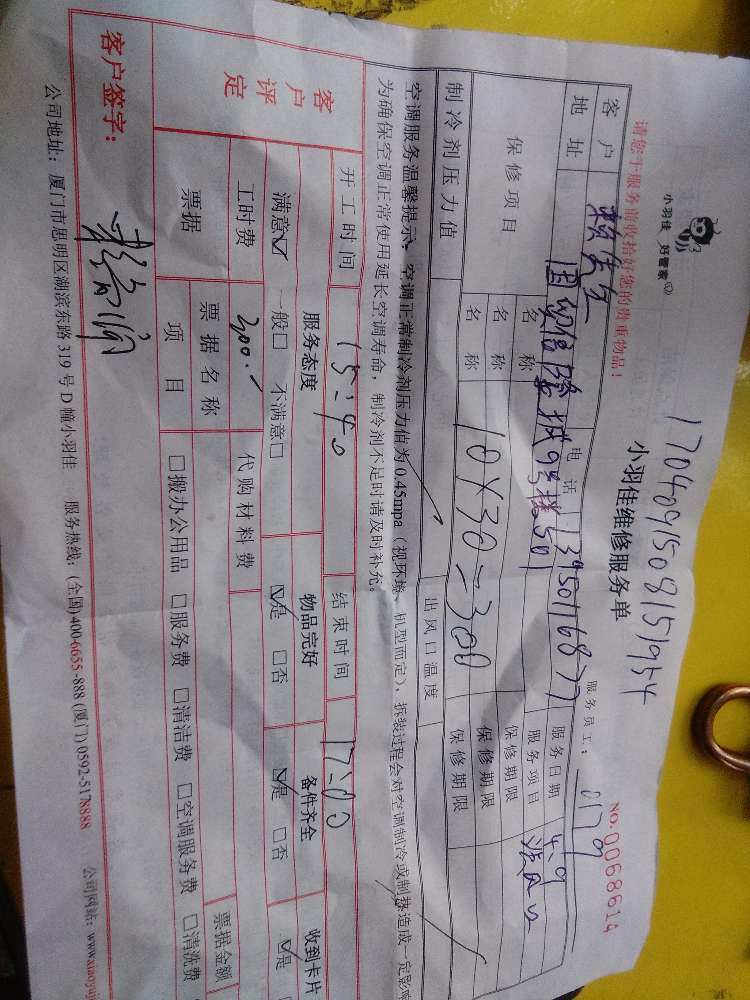 1704091508151954
小羽佳 好管家
小羽佳维修服务单
NO.0068614
请您于服务前收拾好您的贵重物品！
服务员工： 0179
客户 赖先生 电话 13950116877 服务日期 4.9
地址 501 服务项目
保修项目 名称 保修期限
名称 10×30=300 保修期限
名称 保修期限
制冷剂压力值 出风口温度
空调服务温馨提示：空调正常制冷剂压力值为0.45mpa（视环境、机型而定），拆装过程会对空调制冷或制热造成一定影响
为确保空调正常使用延长空调寿命，制冷剂不足时请及时补充。
开工时间 15:40 结束时间 17:00
客户评定 服务态度 物品完好 备件齐全 收到卡片
满意☑ 一般□ 不满意□ ☑是 □否 ☑是 □否 ☑是
工时费 300.- 代购材料费
票据 票据名称 票据金额
项目 □搬办公用品 □服务费 □清洁费 □空调服务费 □清洗费
客户签字：
公司地址：厦门市思明区湖滨东路319号D幢小羽佳 服务热线：(全国)400-6655-888 (厦门)0592-5178888 公司网站：www.xiaoyuj